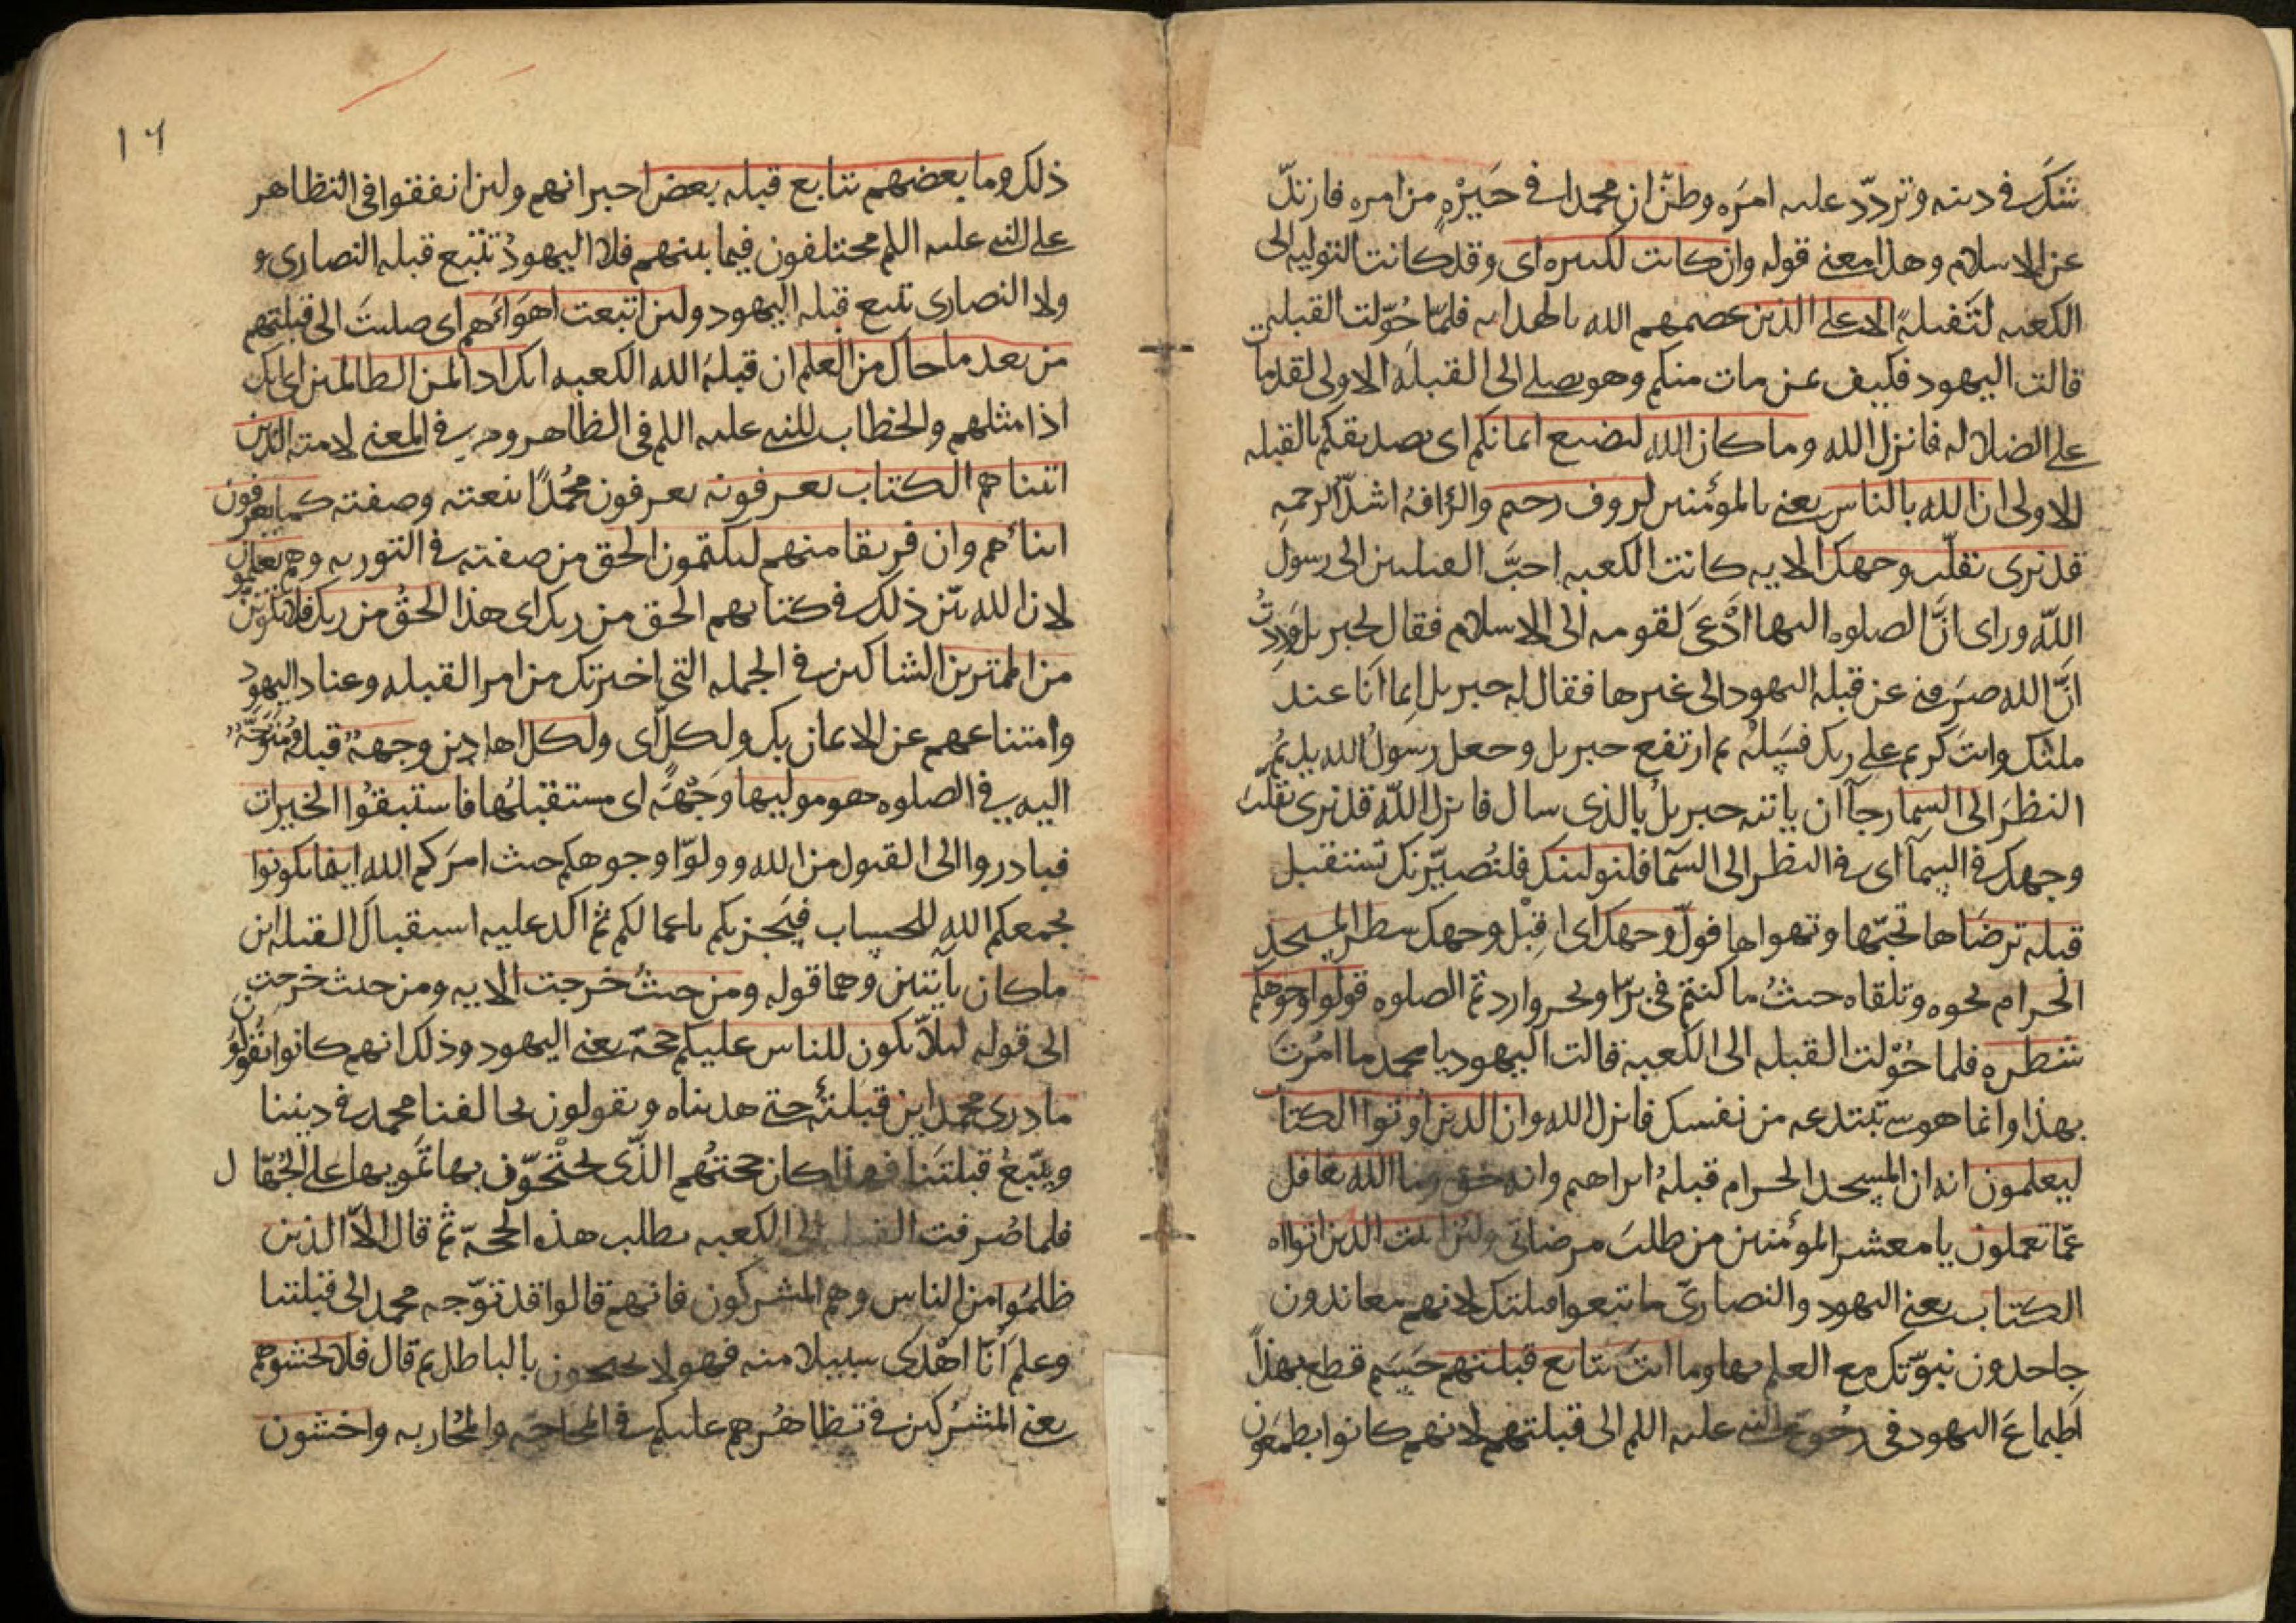 شك في دينه وتردد عليه امره وظن ان محمدا في حيرة من امره فارتد
عن الاسلام وهذا معنى قوله وان كانت لكبيره اى وقد كانت التوليه الى
الكعبه لثقيلة الا على الذين عصمهم الله بالهدايه فلما حولت القبله
قالت اليهود فكيف بمن مات منكم وهو يصلى الى القبلة الاولى لقد مات
على الضلاله فانزل الله وما كان الله ليضيع ايمانكم اى تصديقكم بالقبله
الاولى ان الله بالناس يعنى بالمؤمنين لرووف رحيم والرافة اشد الرحمه
قد نرى تقلب وجهك الايه كانت الكعبه احب القبلتين الى رسول
الله وراى ان الصلوه اليها ادعى لقومه الى الاسلام فقال لجبريل وددت
ان الله صرفنى عن قبله اليهود الى غيرها فقال له جبريل انما انا عند
ملثك وانت كريم على ربك فسله ثم ارتفع جبريل وجعل رسول الله يديم
النظر الى السما رجآ ان ياتيه جبريل بالذى سال فانزل الله قد نرى تقلب
وجهك في السمآ اى في النظر الى السمآ فلنولينك فلنصيرنك تستقبل
قبله ترضاها تحبها وتهواها فول وجهك اى اقبل وجهك شطر المسجد
الحرام نحوه وتلقاه وحيث ما كنتم في بر او بحر واردتم الصلوه فولوا وجوهكم
شطره فلما حولت القبله الى الكعبة قالت اليهود يا محمد ما امرت
بهذا وانما هو شى تبتدعه من نفسك فانزل الله وان الذين اوتوا الكتاب
ليعلمون انه ان المسجد الحرام قبلة ابراهيم وانه حق وما الله بغافل
عما تعملون يا معشر المؤمنين من طلب مرضاتى ولئن اتيت الذين اوتوا
الكتاب يعنى اليهود والنصارى ما تبعوا قبلتك لانهم معاندون
جاحدون نبوتك مع العلم بها وما انت بتابع قبلتهم حسم قطع بهذا
اطماع اليهود في رجوع النبى عليه اللم الى قبلتهم لانهم كانوا يطمعون
١٦
ذلك وما بعضهم بتابع قبله بعض اخبر انهم ولئن اتفقوا في التظاهر
على النبى عليه اللم مختلفون فيما بينهم فلا اليهود تتبع قبله النصارى و
ولا النصارى تتبع قبله اليهود ولئن اتبعت اهواءهم اى صليت الى قبلتهم
من بعد ما جاك من العلم ان قبلة الله الكعبه انك اذا لمن الظالمين اى انك
اذا مثلهم والخطاب للنبى عليه اللم في الظاهر وهو في المعنى لامته الذين
اتيناهم الكتاب يعرفونه يعرفون محمدا بنعته وصفته كما يعرفون
ابنائهم وان فريقا منهم ليكتمون الحق من صفته في التوريه وهم يعلمون
لان الله بين ذلك في كتابهم الحق من ربك اى هذا الحق من ربك فلا تكونن
من الممترين الشاكين في الجمله التى اخبرتك من امر القبله وعناد اليهود
وامتناعهم عن الايمان بك ولكل اى ولكل اهل دين وجهة قبلة ومتوجه
اليه في الصلوه هو موليها وجهه اى مستقبلها فاستبقوا الخيرات
فبادروا الى القبول من الله وولوا وجوهكم حيث امركم الله اينما تكونوا
يجمعكم الله للحساب فيجزيكم باعمالكم ثم اكد عليه استقبال القبله اين
ما كان بايتين وهما قوله ومن حيث خرجت الايه ومن حيث خرجت
الى قوله ليلا يكون للناس عليكم حجة يعنى اليهود وذلك انهم كانوا يقولون
ما درى محمد اين قبلته حتى هديناه ويقولون يخالفنا محمد في ديننا
ويتبع قبلتنا فهذا كان حجتهم الذى يحتجون بها تمويها على الجهال
فلما صرفت القبله الى الكعبه بطلت هذه الحجة ثم قال الا الذين
ظلموا من الناس وهم المشركون فانهم قالوا قد توجه محمد الى قبلتنا
وعلم انا اهدى سبيلا منه فهولا يحتجون بالباطل ثم قال فلا تخشوهم
يعنى المشركين في تظاهرهم عليكم في المحاجه والمحاربه واخشون